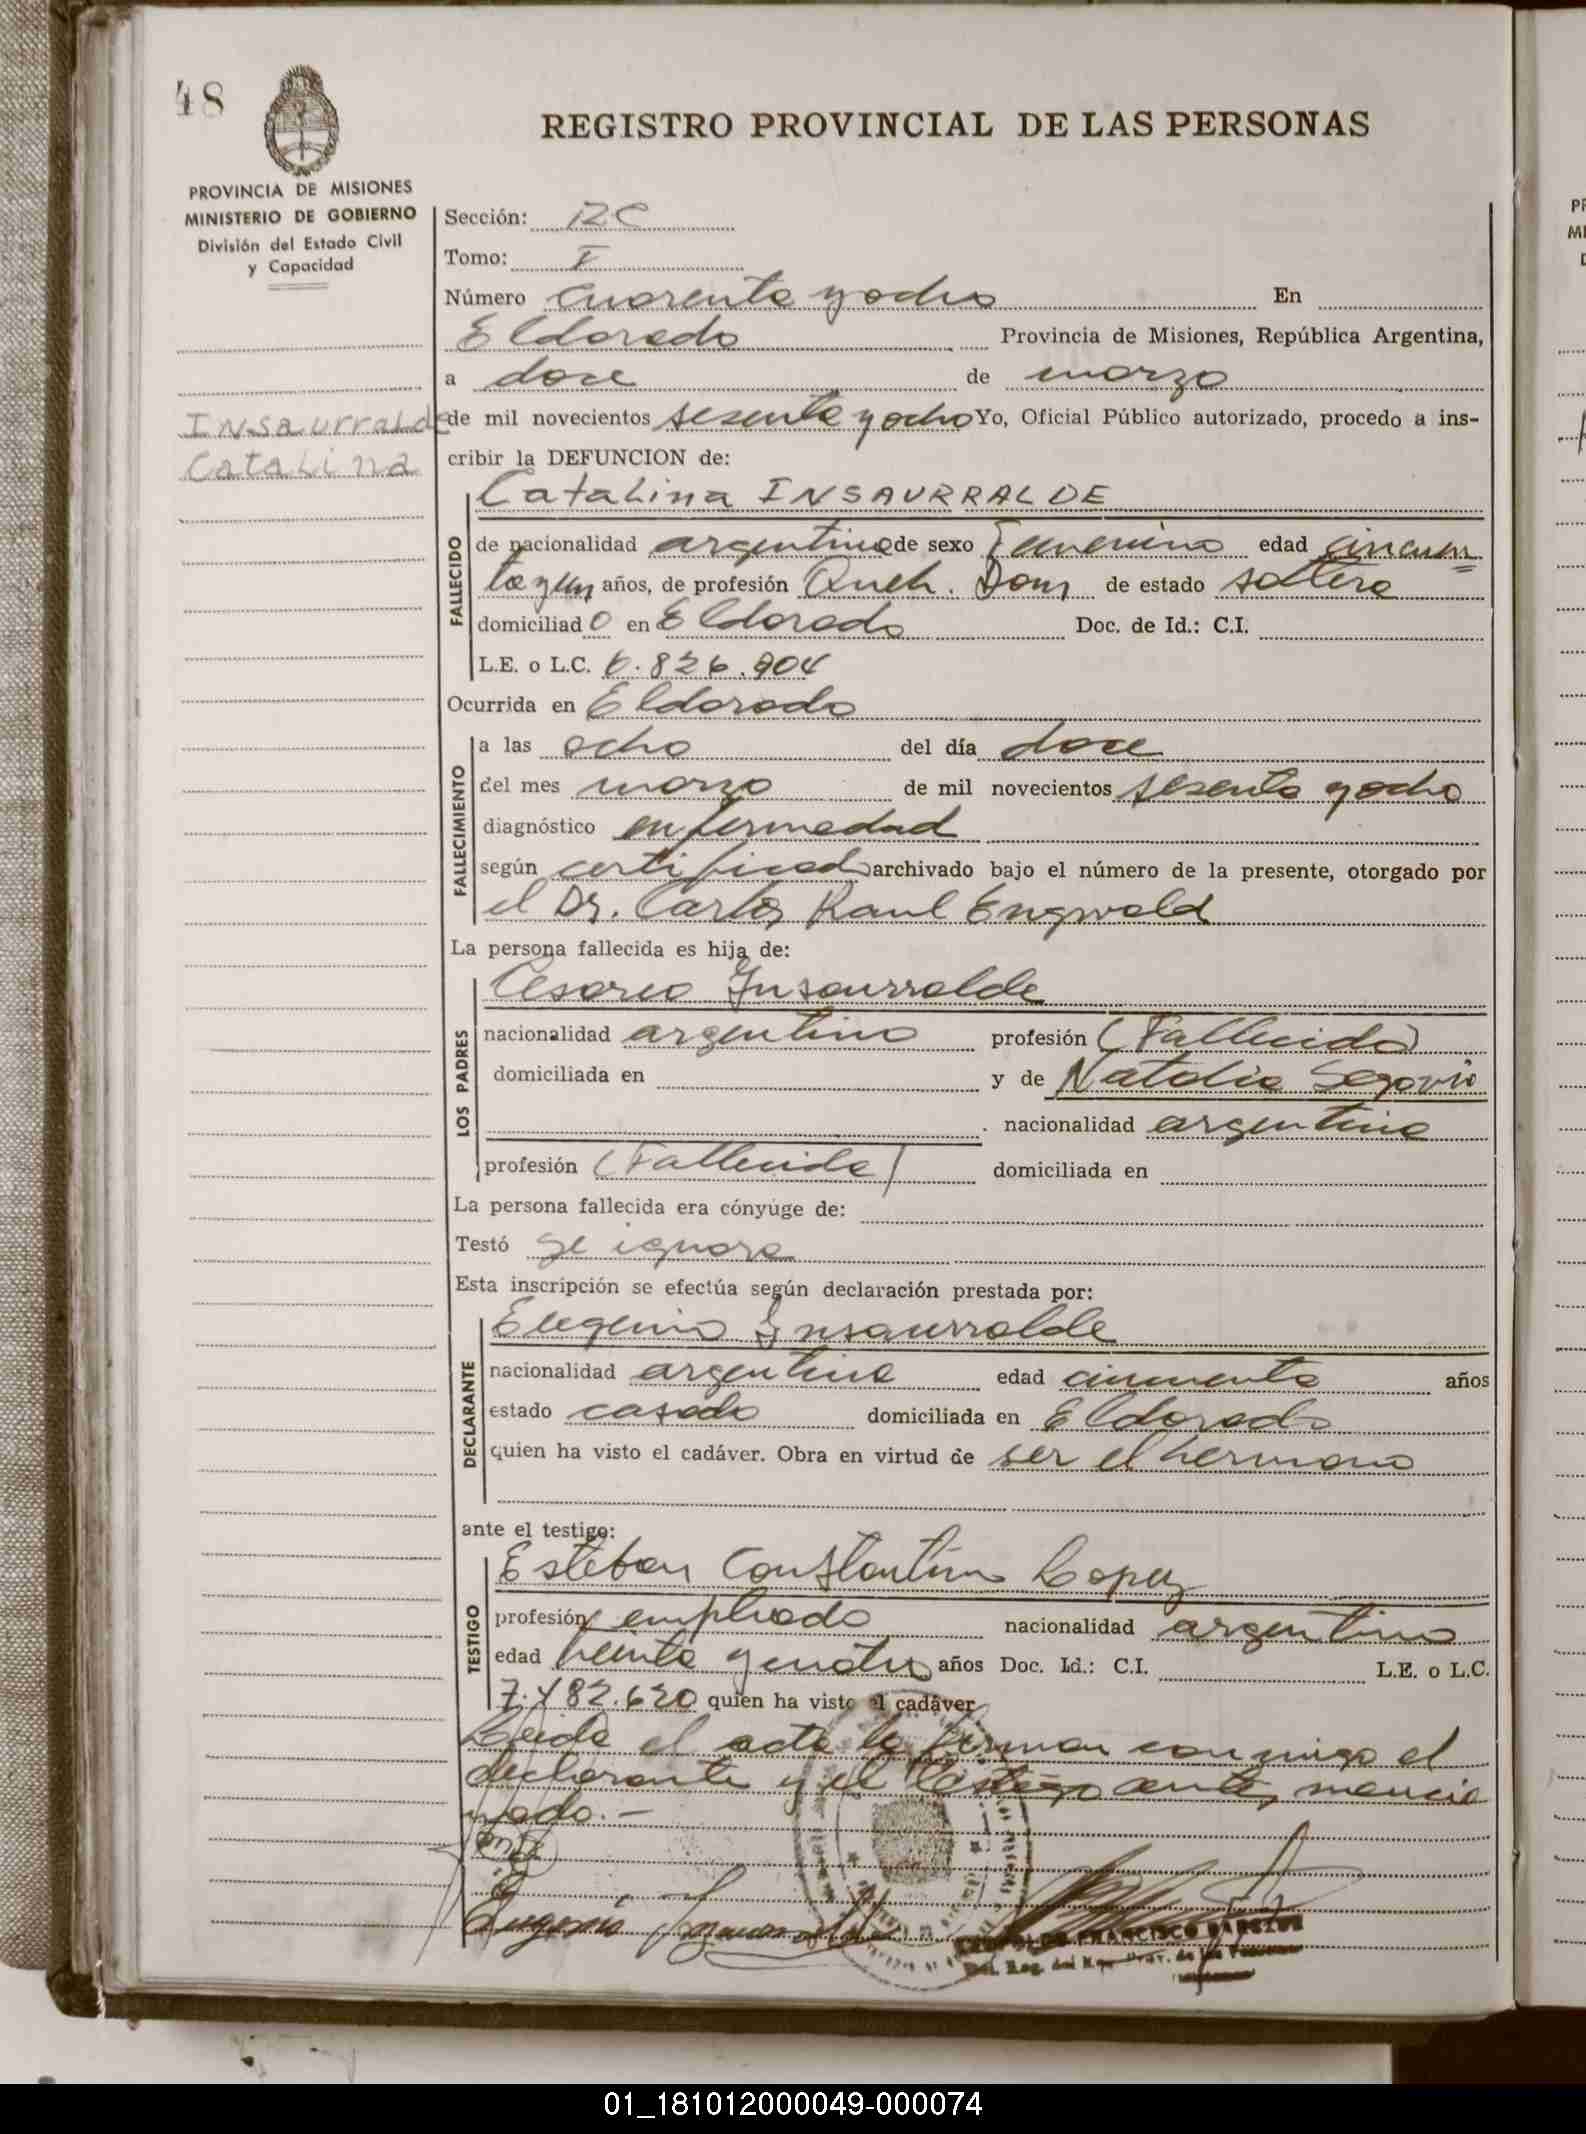 48
REGISTRO PROVINCIAL DE LAS PERSONAS
PROVINCIA DE MISIONES
MINISTERIO DE GOBIERNO
División del Estado Civil
y Capacidad
Insaurralde
Catalina
Sección:
Tomo: I
Número cuarenta y ocho En
Eldorado Provincia de Misiones, República Argentina,
a doce de marzo
de mil novecientos sesenta y ocho Yo, Oficial Público autorizado, procedo a ins-
cribir la DEFUNCION de:
FALLECIDO
Catalina INSAURRALDE
de nacionalidad argentina de sexo Femenino edad cincuen
ta y un años, de profesión Queh. Dom de estado soltera
domiciliado en Eldorado Doc. de Id.: C.I.
L.E. o L.C. 6.826.904
Ocurrida en Eldorado
FALLECIMIENTO
a las ocho del día doce
del mes marzo de mil novecientos sesenta y ocho
diagnóstico enfermedad
según certificado archivado bajo el número de la presente, otorgado por
el Dr. Carlos Raul Engwald
La persona fallecida es hija de:
LOS PADRES
Cesareo Insaurralde
nacionalidad argentino profesión (Fallecido)
domiciliada en y de Natalia Segovia
nacionalidad argentina
profesión (Fallecida) domiciliada en
La persona fallecida era cónyuge de:
Testó se ignora
Esta inscripción se efectúa según declaración prestada por:
DECLARANTE
Eugenio Insaurralde
nacionalidad argentina edad cincuenta años
estado casado domiciliada en Eldorado
quien ha visto el cadáver. Obra en virtud de ser el hermano
ante el testigo:
TESTIGO
Esteban Constantino Lopez
profesión empleado nacionalidad argentino
edad treinta y cuatro años Doc. Id.: C.I. L.E. o L.C.
7.482.620 quien ha visto el cadáver
Leida el acta la firman conmigo el
declarante y el testigo antes mencio
nado.-
Eugenio Insaurralde
FRANCISCO
01_181012000049-000074